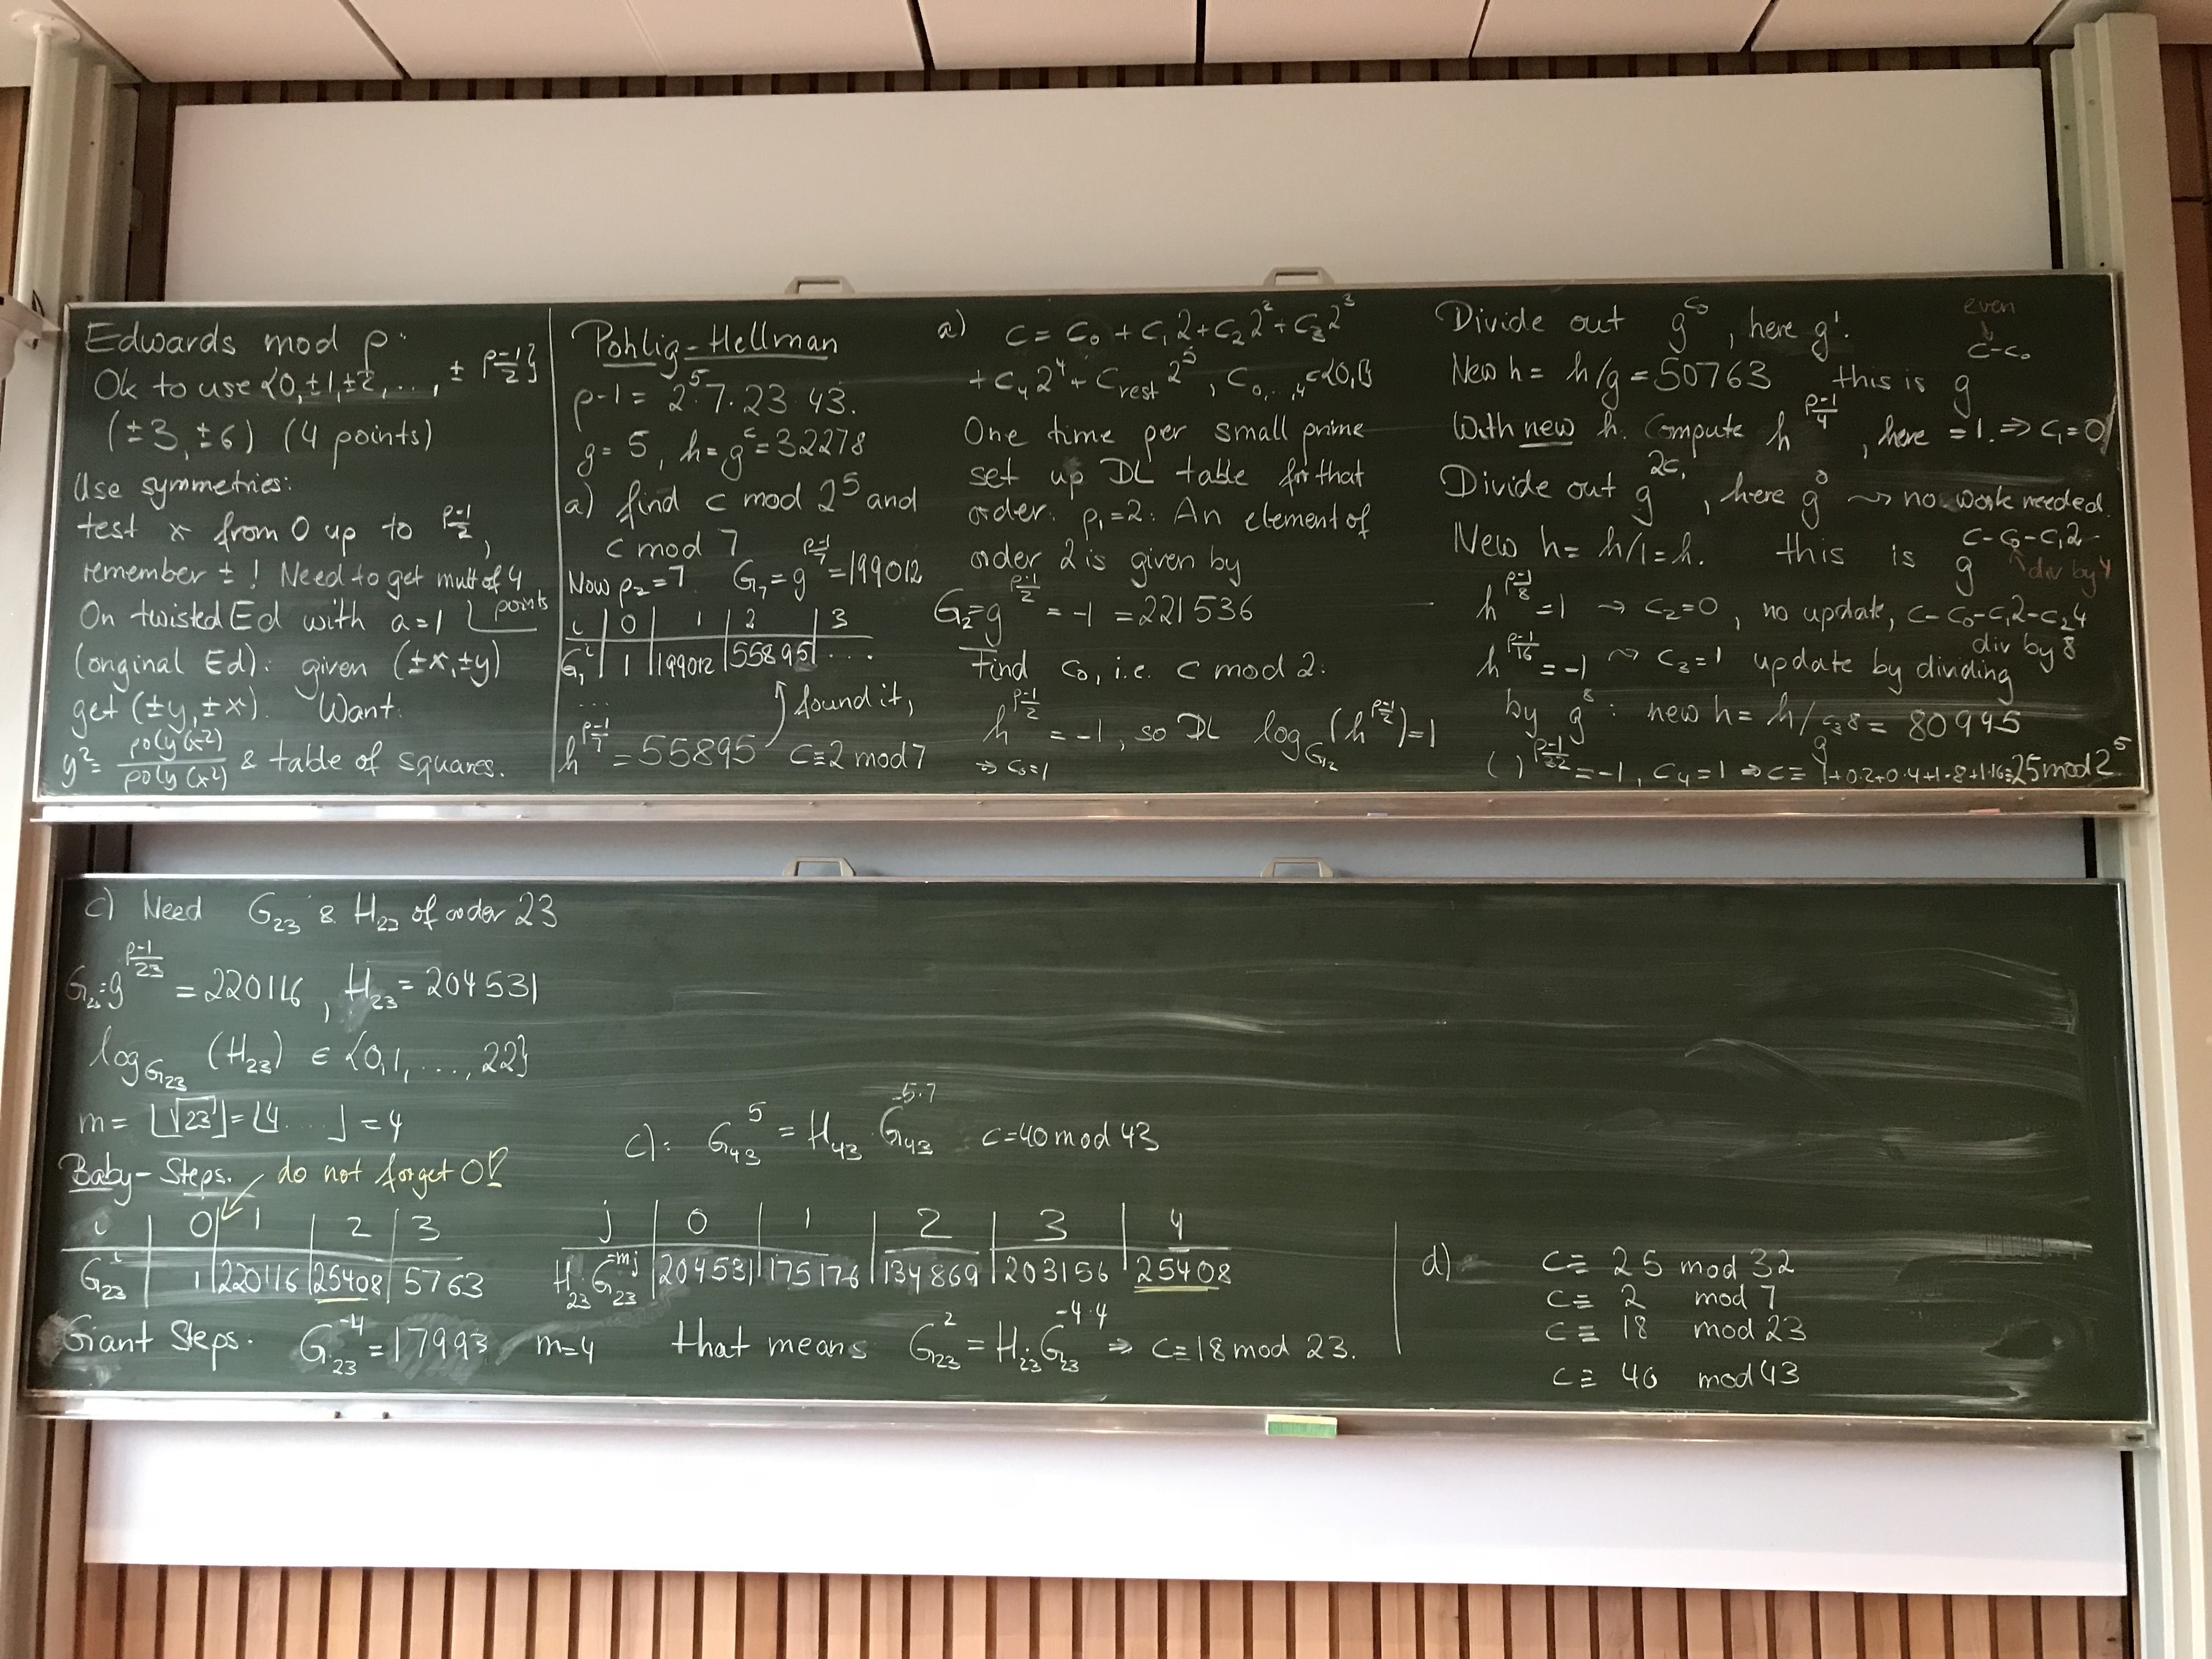 Edwards mod p:
Ok to use {0,±1,±2,..., ± (p-1)/2}
(±3,±6) (4 points)
Use symmetries:
test x from 0 up to (p-1)/2,
remember ±! Need to get mult of 4
points
On twisted Ed with a=1
(original Ed): given (±x,±y)
get (±y,±x). Want:
y² = poly(x²)/poly(x²) & table of squares.
Pohlig-Hellman
p-1 = 2⁵·7·23·43.
g=5, h=g^c=32278
a) find c mod 2⁵ and
c mod 7
Now p₂=7. G₇=g^((p-1)/7)=199012
i | 0 | 1 | 2 | 3
G₇^i | 1 | 199012 | 55895 | ...
...
found it,
h^((p-1)/7) = 55895 c≡2 mod 7
a) c = c₀ + c₁2 + c₂2² + c₃2³
+ c₄2⁴ + c_rest 2⁵, c₀,..,₄ ∈{0,1}
One time per small prime
set up DL table for that
order: p₁=2: An element of
order 2 is given by
G₂=g^((p-1)/2) = -1 = 221536
Find c₀, i.e. c mod 2:
h^((p-1)/2) = -1, so DL log_G₂(h^((p-1)/2))=1
⇒ c₀=1
Divide out g^c₀, here g¹.
even
New h = h/g = 50763 this is g^(c-c₀)
With new h. Compute h^((p-1)/4), here =1. ⇒ c₁=0
Divide out g^(2c₁), here g⁰ ⇝ no work needed.
New h = h/1 = h. this is g^(c-c₀-c₁2)
div by 4
h^((p-1)/8) = 1 → c₂=0, no update, c-c₀-c₁2-c₂4
div by 8
h^((p-1)/16) = -1 ⇝ c₃=1 update by dividing
by g⁸: new h = h/g^(c₃8) = 80945
( )^((p-1)/32) = -1, c₄=1 ⇒ c ≡ 1+0·2+0·4+1·8+1·16≡25 mod 2⁵
c) Need G₂₃ & H₂₃ of order 23
G₂₃=g^((p-1)/23) = 220116, H₂₃ = 204531
log_G₂₃ (H₂₃) ∈ {0,1,...,22}
m = ⌊√23⌋ = ⌊4....⌋ = 4
Baby-Steps. do not forget 0!
i | 0 | 1 | 2 | 3
G₂₃^i | 1 | 220116 | 25408 | 5763
Giant Steps. G₂₃^-4 = 17993 m=4
c): G₄₃^5 = H₄₃·G₄₃^(-5·7) c=40 mod 43
j | 0 | 1 | 2 | 3 | 4
H₂₃·G₂₃^(-mj) | 204531 | 175176 | 134869 | 203156 | 25408
that means G₂₃^2 = H₂₃·G₂₃^(-4·4) ⇒ c≡18 mod 23.
d) c ≡ 25 mod 32
c ≡ 2 mod 7
c ≡ 18 mod 23
c ≡ 40 mod 43